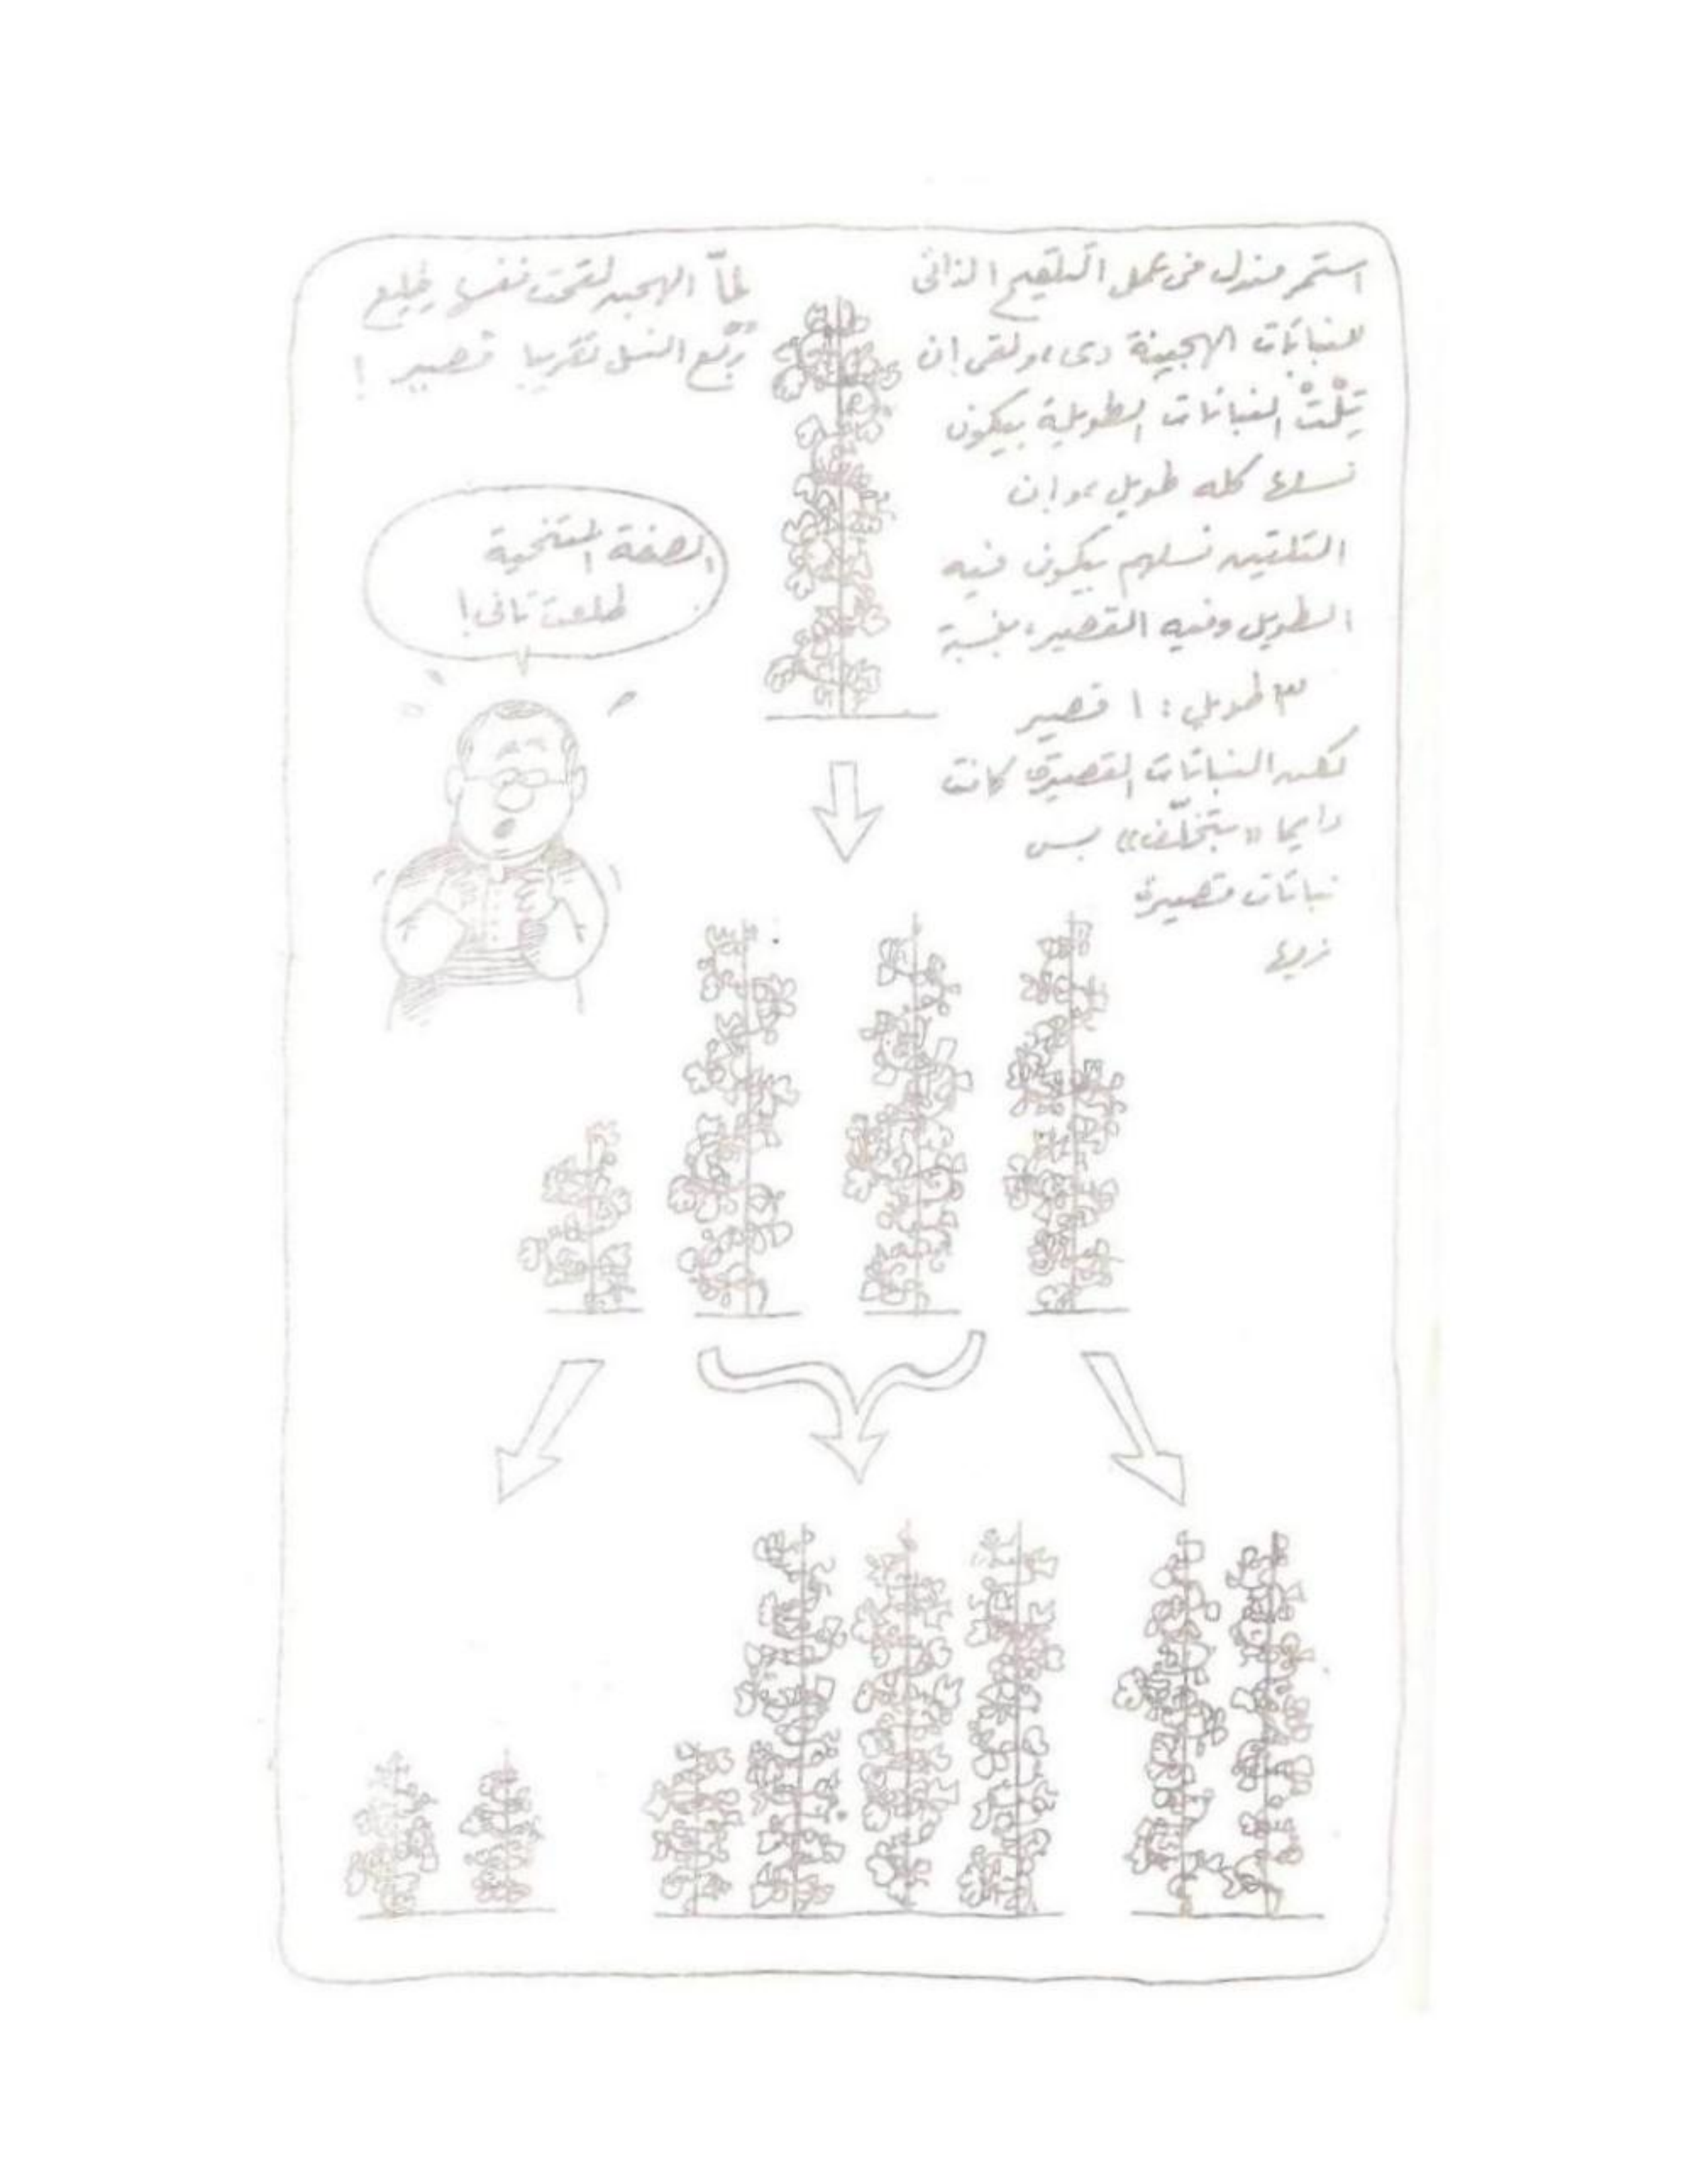 استمر مندل فى عمل التلقيح الذاتى
للنباتات الهجينة دى، ولقى إن
تِلْتْ النباتات الطويلة بيكون
نسلها كله طويل، وإن
التلتين نسلهم بيكون فيه
الطويل وفيه القصير، بنسبة
٣ طويل : ١ قصير
لكن النباتات القصيرة كانت
دايما «بتخلّف» بس
نباتات قصيرة
زيها
لمّا الهجين لقحت نفسها طلع
رُبْع النسل تقريبا قصير !
الصفة المتنحية
طلعت تانى!